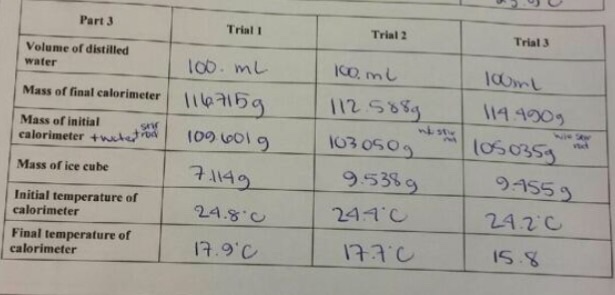 Part 3 Trial 1 Trial 2 Trial 3
Volume of distilled water 100. mL 100. mL 100mL
Mass of final calorimeter 116.715g 112.588g 114.490g
Mass of initial calorimeter + water + stir rod 109.601g 103.050g w/o stir rod 105.035g w/o stir rod
Mass of ice cube 7.114g 9.538g 9.455g
Initial temperature of calorimeter 24.8°C 24.4°C 24.2°C
Final temperature of calorimeter 17.9°C 17.7°C 15.8